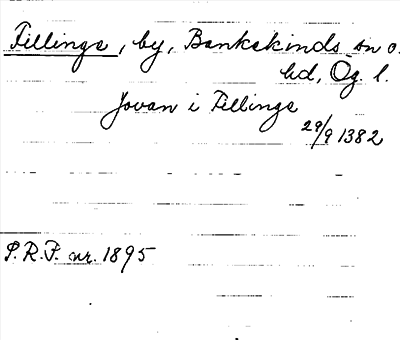 Fillinge, by, Bankekinds sn o.
hd, Ög. l.
Jovan i Fillinge
29/9 1382
P.R.P. nr. 1895